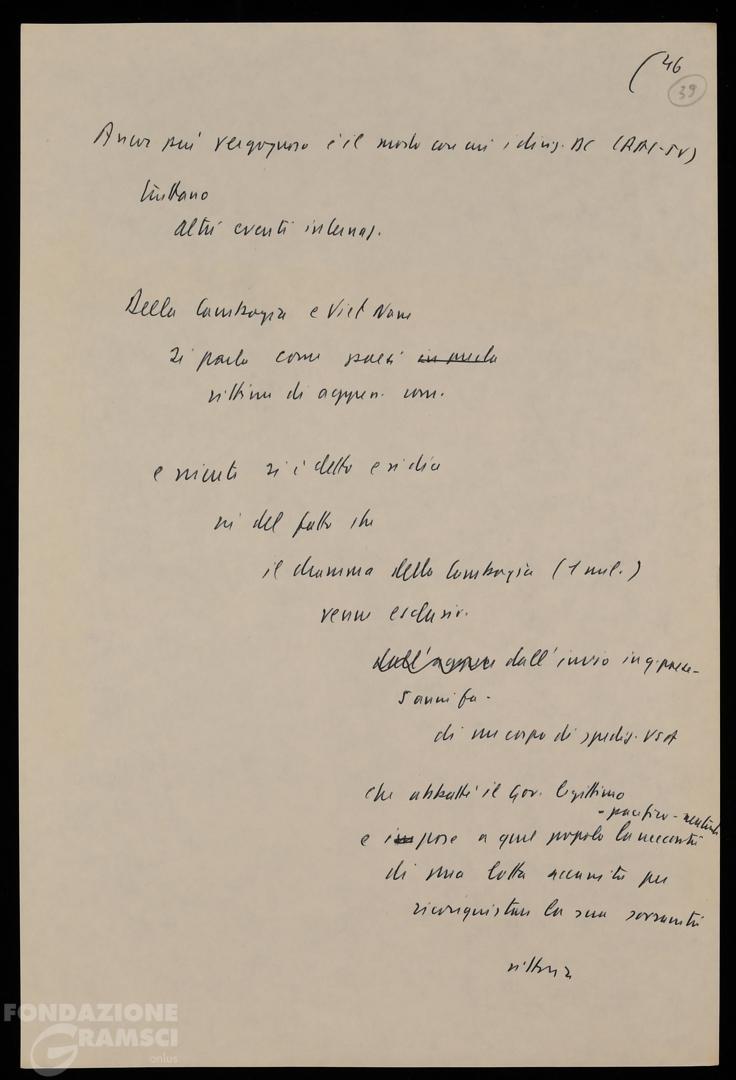 46
39
Ancor più vergognoso è il modo con cui i dirig. DC
trattano
altri eventi internaz.
Della Cambogia e Viet Nam
si parla come paesi
vittime di aggress. com.
e niente si è detto e si dica
del fatto che
il dramma della Cambogia (1 mil.)
venne esclusiv.
dall'invio in q. paese -
5 anni fa -
di un corpo di spediz. USA
che abbatté il Gov. legittimo
- pacifico - neutrale
e impose a quel popolo la necessità
di una lotta accanita per
riconquistare la sua sovranità
vittoria
FONDAZIONE
GRAMSCI
onlus